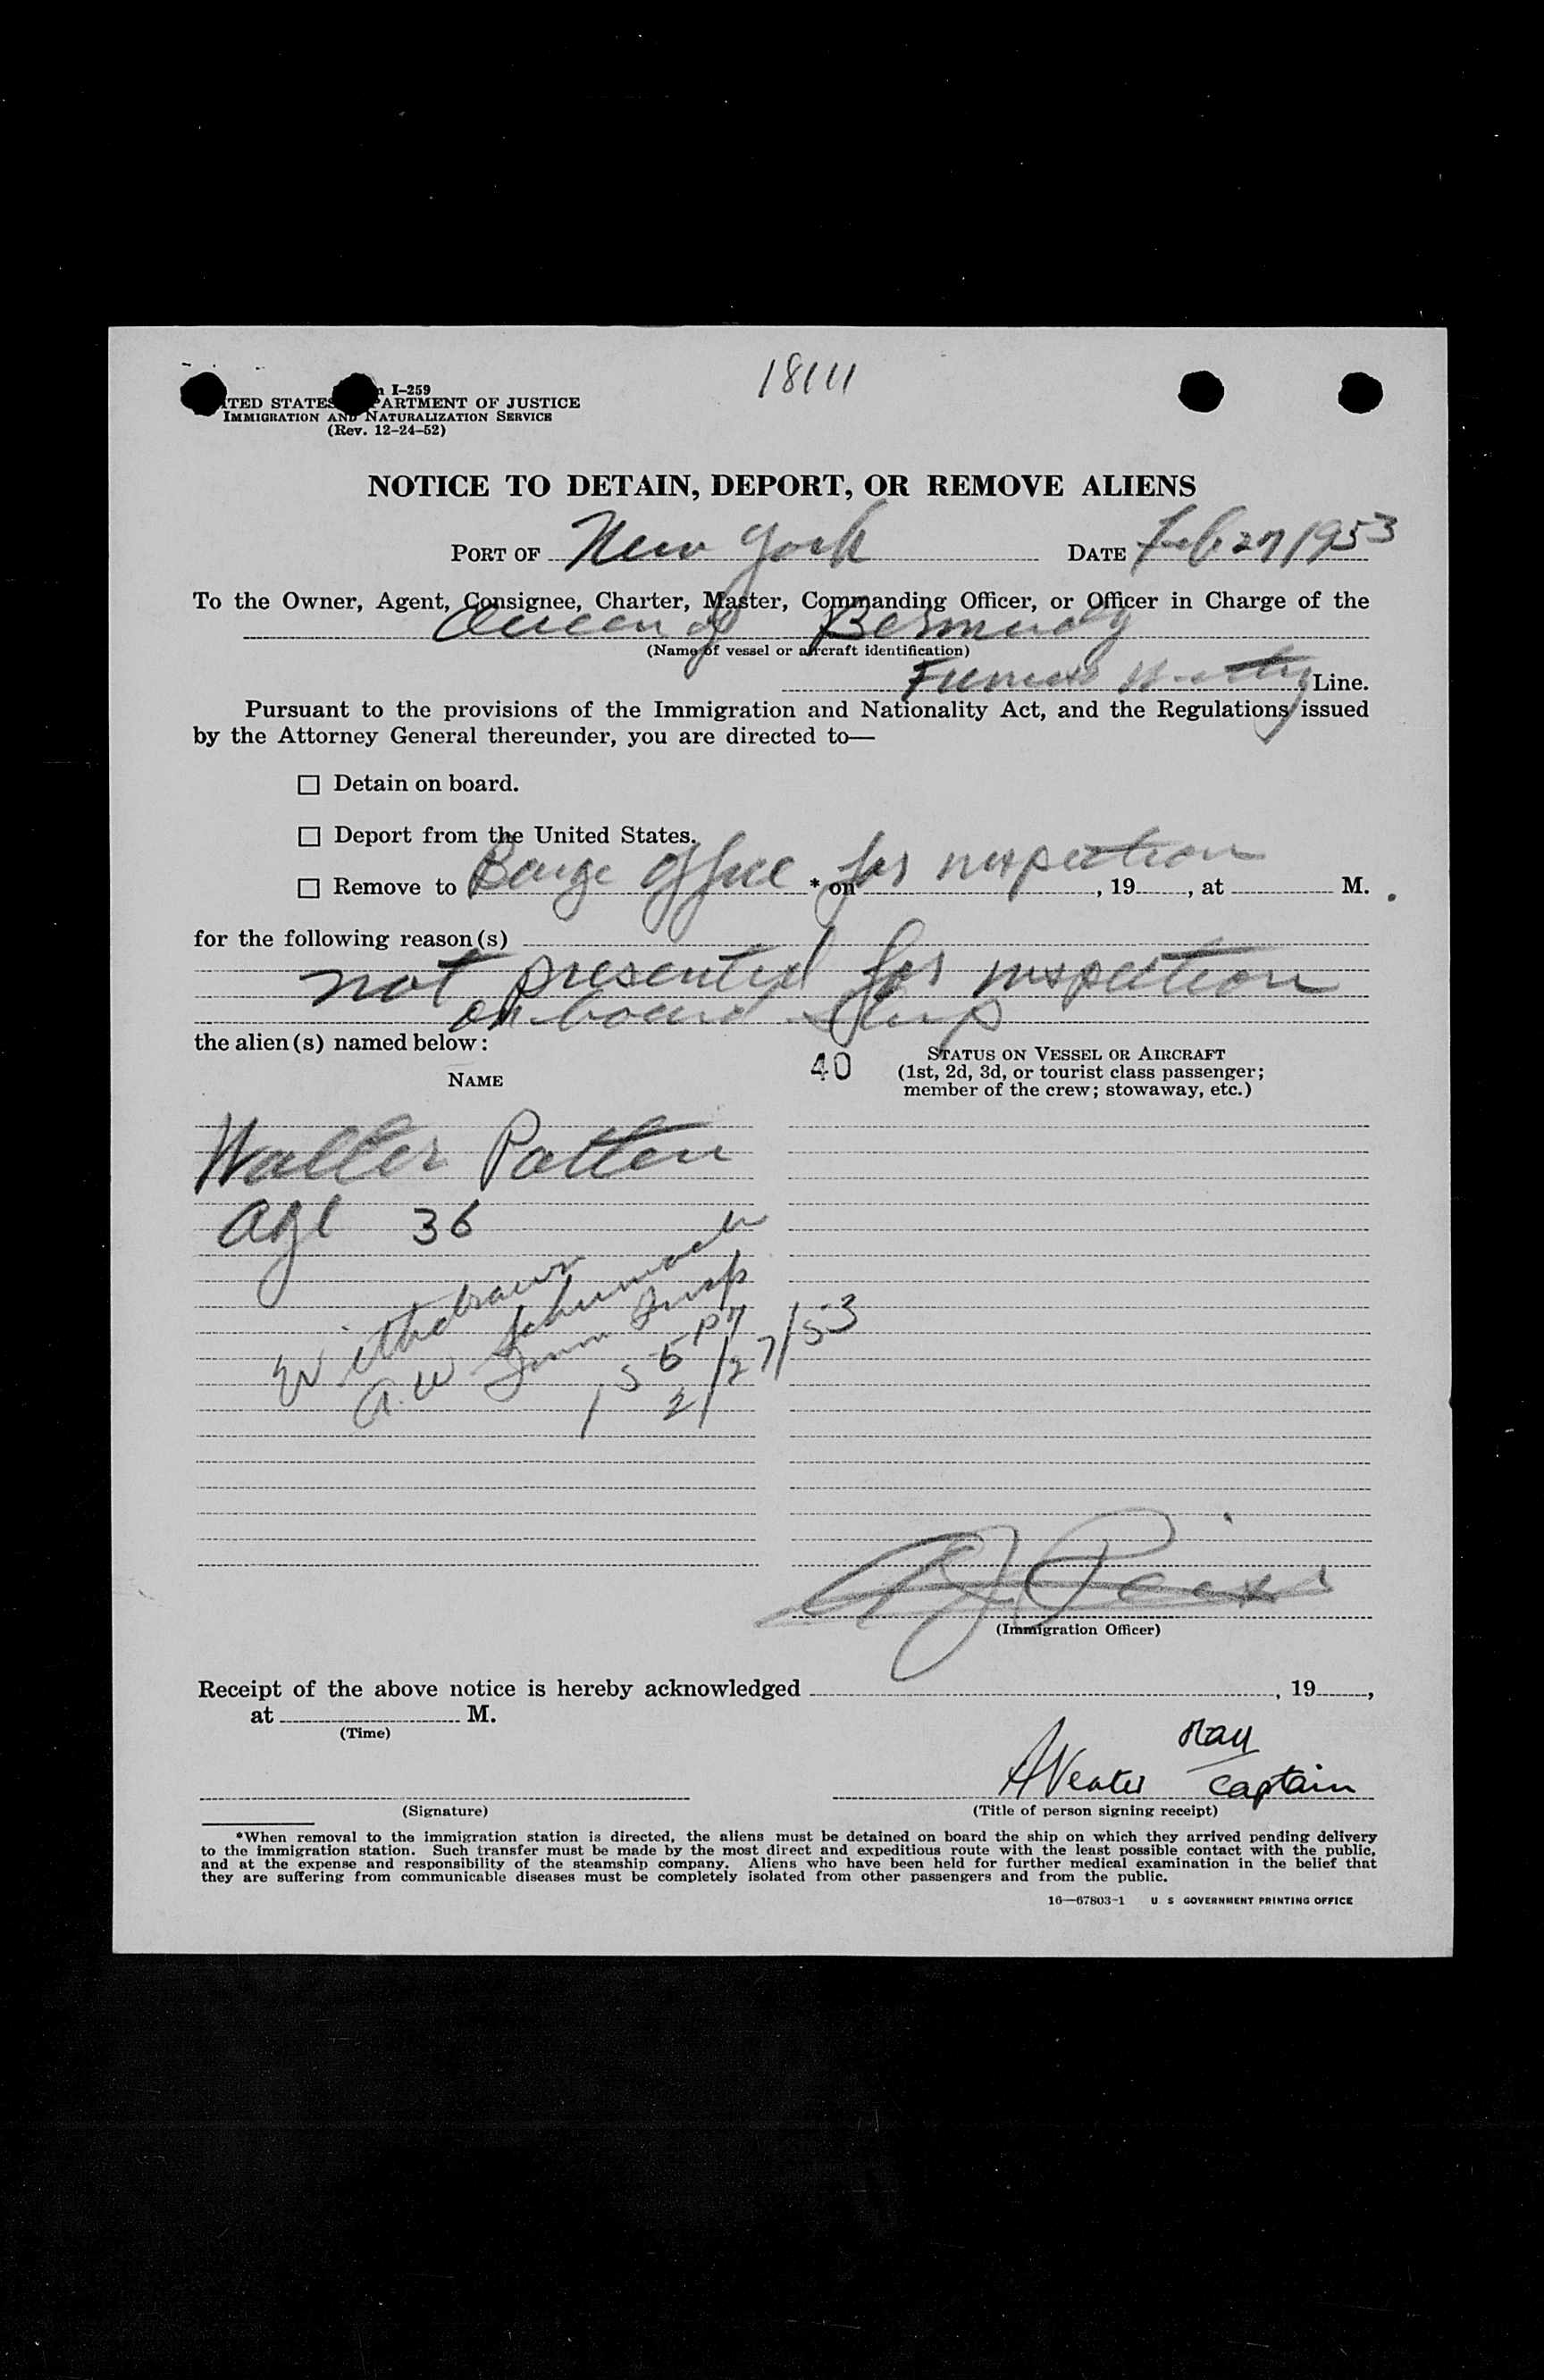 18111
I-259
ITED STATES PARTMENT OF JUSTICE
IMMIGRATION AND NATURALIZATION SERVICE
(Rev. 12-24-52)
NOTICE TO DETAIN, DEPORT, OR REMOVE ALIENS
PORT OF New York DATE Feb 27 1953
To the Owner, Agent, Consignee, Charter, Master, Commanding Officer, or Officer in Charge of the
Queen of Bermuda
(Name of vessel or aircraft identification)
Furness Withy Line.
Pursuant to the provisions of the Immigration and Nationality Act, and the Regulations issued
by the Attorney General thereunder, you are directed to—
☐ Detain on board.
☐ Deport from the United States.
☐ Remove to Barge Office * on for inspection , 19 , at M.
for the following reason(s)
not presented for inspection
on board ship
the alien(s) named below:
NAME
40
STATUS ON VESSEL OR AIRCRAFT
(1st, 2d, 3d, or tourist class passenger;
member of the crew; stowaway, etc.)
Walter Patten
age 36
Withdrawn
A.W. Schumacher
Imm Insp
1 55 pm
2/27/53
(Immigration Officer)
Receipt of the above notice is hereby acknowledged , 19 ,
at M.
(Time)
Captain
(Signature)
(Title of person signing receipt)
*When removal to the immigration station is directed, the aliens must be detained on board the ship on which they arrived pending delivery
to the immigration station. Such transfer must be made by the most direct and expeditious route with the least possible contact with the public,
and at the expense and responsibility of the steamship company. Aliens who have been held for further medical examination in the belief that
they are suffering from communicable diseases must be completely isolated from other passengers and from the public.
16—67803-1 U S GOVERNMENT PRINTING OFFICE